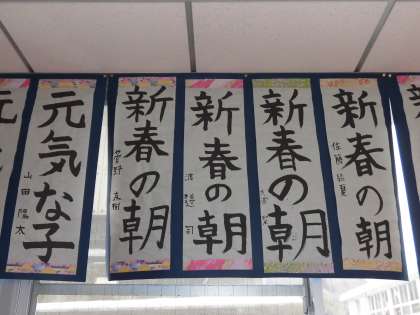 元気な子
山田陽太
新春の朝
菅野
新春の朝
新春の朝
新春の朝
佐藤